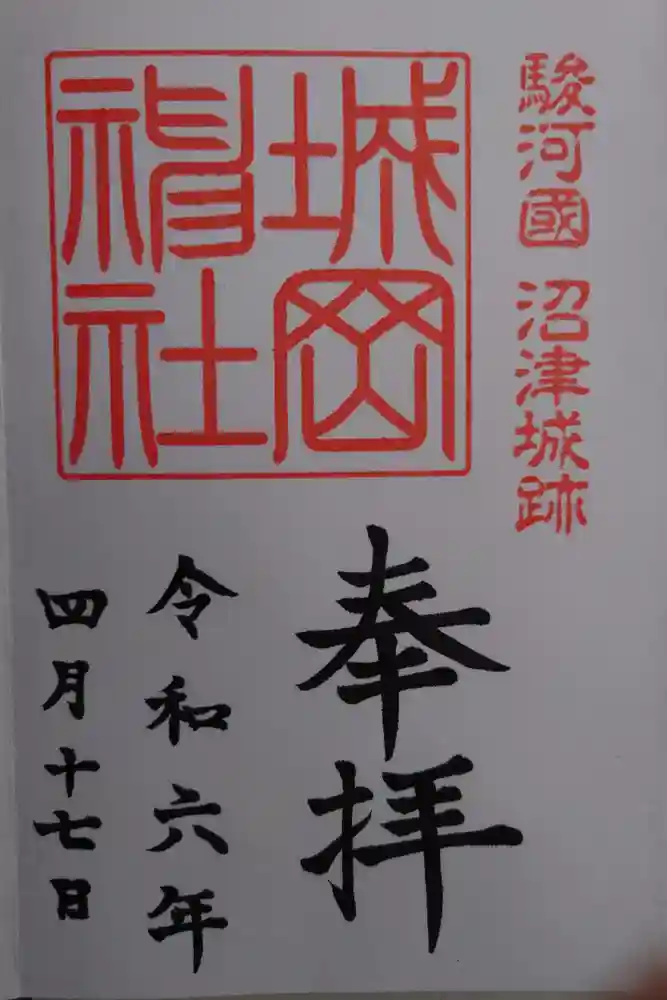 駿河國 沼津城跡
城岡神社
奉拝
令和六年
四月十七日